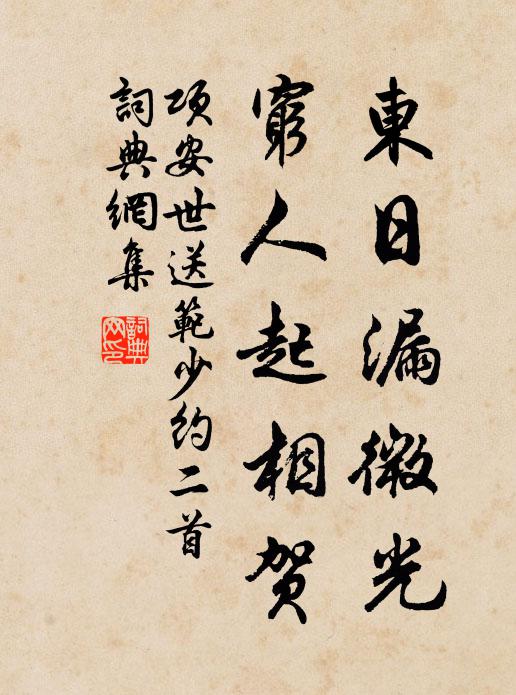 東日漏微光
窮人起相賀
項安世送範少約二首
詞典網集
詞典
网印